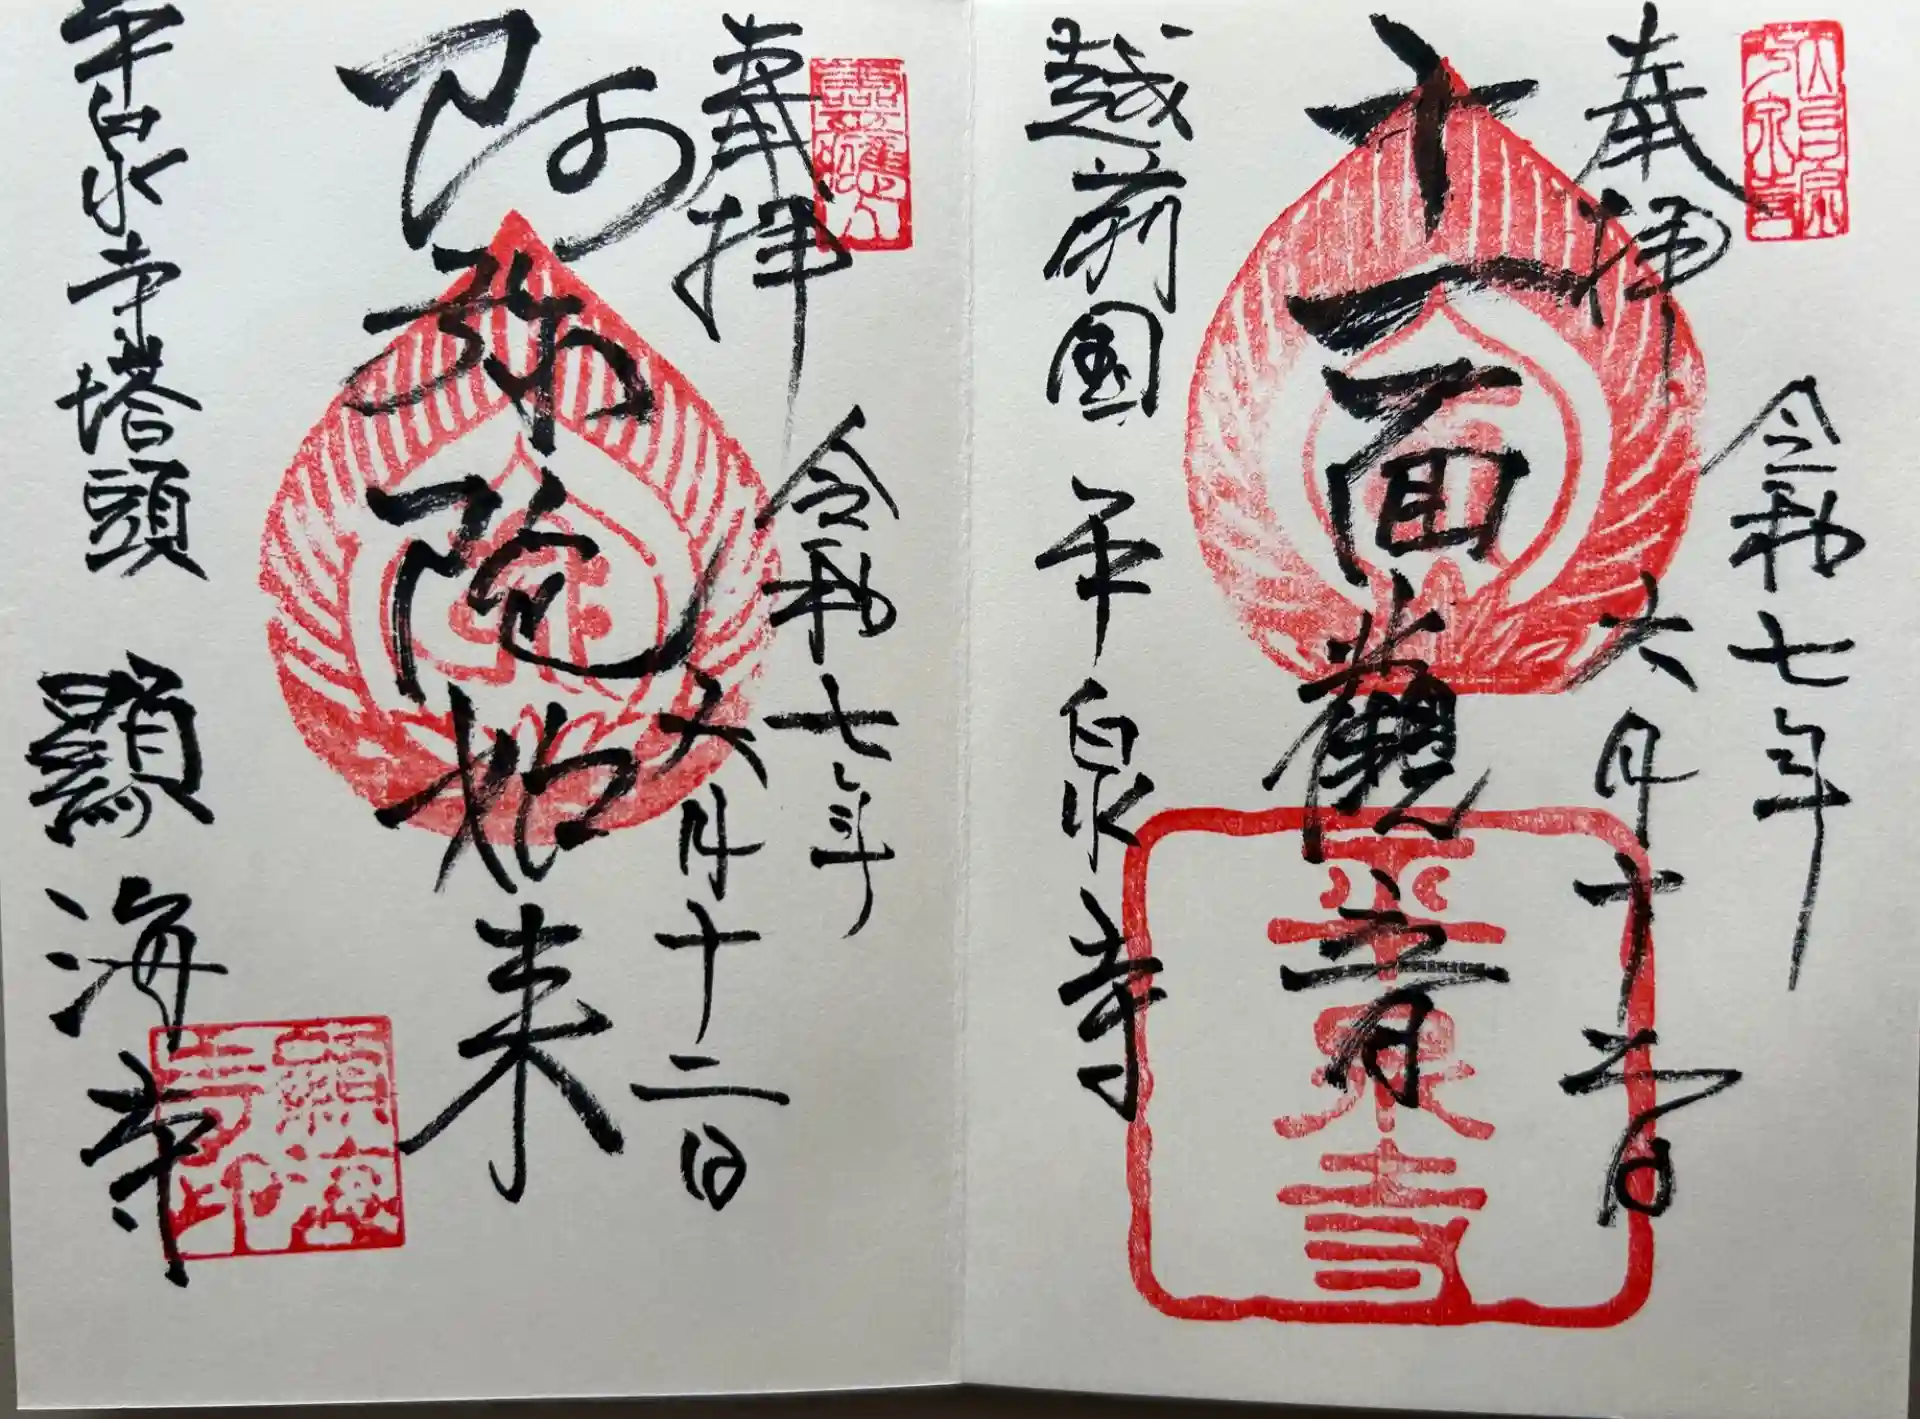 奉拝
令和七年
六月十二日
十一面觀音
越前国 平泉寺
平泉寺
奉拝
令和七年
六月十二日
阿弥陀如来
平泉寺塔頭 顯海寺
顯海寺印